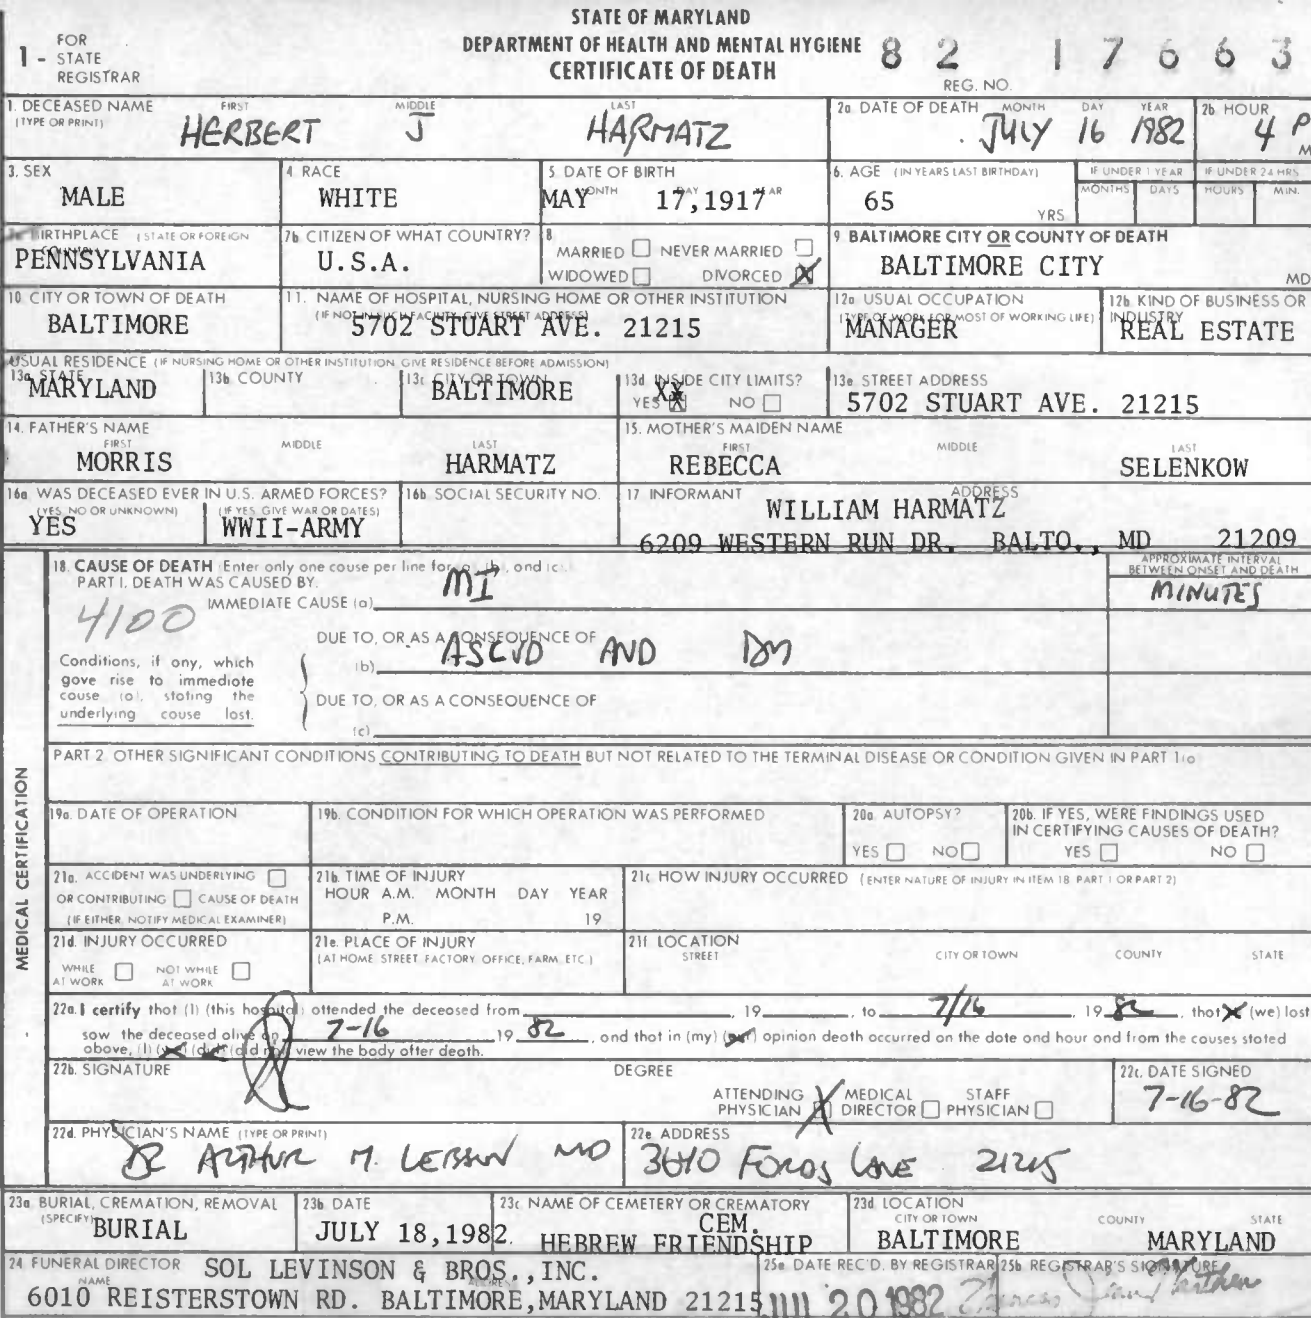 STATE OF MARYLAND
DEPARTMENT OF HEALTH AND MENTAL HYGIENE
CERTIFICATE OF DEATH
1 - FOR STATE REGISTRAR
82 17663
REG. NO.
1. DECEASED NAME (TYPE OR PRINT) FIRST MIDDLE LAST
HERBERT J HARMATZ
2a. DATE OF DEATH MONTH DAY YEAR
JULY 16 1982
2b. HOUR
4 P M
3. SEX
MALE
4. RACE
WHITE
5. DATE OF BIRTH MONTH DAY YEAR
MAY 17,1917
6. AGE (IN YEARS LAST BIRTHDAY)
65 YRS
IF UNDER 1 YEAR MONTHS DAYS
IF UNDER 24 HRS HOURS MIN.
7a. BIRTHPLACE (STATE OR FOREIGN COUNTRY)
PENNSYLVANIA
7b. CITIZEN OF WHAT COUNTRY?
U.S.A.
8. MARRIED NEVER MARRIED
WIDOWED DIVORCED X
9. BALTIMORE CITY OR COUNTY OF DEATH
BALTIMORE CITY MD
10. CITY OR TOWN OF DEATH
BALTIMORE
11. NAME OF HOSPITAL, NURSING HOME OR OTHER INSTITUTION
(IF NOT IN SUCH FACILITY, GIVE STREET ADDRESS)
5702 STUART AVE. 21215
12a. USUAL OCCUPATION
(TYPE OF WORK FOR MOST OF WORKING LIFE)
MANAGER
12b. KIND OF BUSINESS OR INDUSTRY
REAL ESTATE
USUAL RESIDENCE (IF NURSING HOME OR OTHER INSTITUTION GIVE RESIDENCE BEFORE ADMISSION)
13a. STATE
MARYLAND
13b. COUNTY
13c. CITY OR TOWN
BALTIMORE
13d. INSIDE CITY LIMITS?
YES X NO
13e. STREET ADDRESS
5702 STUART AVE. 21215
14. FATHER'S NAME
FIRST MIDDLE LAST
MORRIS HARMATZ
15. MOTHER'S MAIDEN NAME
FIRST MIDDLE LAST
REBECCA SELENKOW
16a. WAS DECEASED EVER IN U.S. ARMED FORCES?
(YES, NO OR UNKNOWN) (IF YES, GIVE WAR OR DATES)
YES WWII-ARMY
16b. SOCIAL SECURITY NO.
17. INFORMANT ADDRESS
WILLIAM HARMATZ
6209 WESTERN RUN DR. BALTO., MD 21209
MEDICAL CERTIFICATION
18. CAUSE OF DEATH (Enter only one cause per line for a, (b), and (c).)
PART I. DEATH WAS CAUSED BY.
IMMEDIATE CAUSE (a) MI
APPROXIMATE INTERVAL BETWEEN ONSET AND DEATH
MINUTES
4100
DUE TO, OR AS A CONSEQUENCE OF
(b) ASCVD AND DM
Conditions, if any, which
gave rise to immediate
cause (a), stating the
underlying cause last.
DUE TO, OR AS A CONSEQUENCE OF
(c)
PART 2. OTHER SIGNIFICANT CONDITIONS CONTRIBUTING TO DEATH BUT NOT RELATED TO THE TERMINAL DISEASE OR CONDITION GIVEN IN PART 1(a)
19a. DATE OF OPERATION
19b. CONDITION FOR WHICH OPERATION WAS PERFORMED
20a. AUTOPSY?
YES NO
20b. IF YES, WERE FINDINGS USED
IN CERTIFYING CAUSES OF DEATH?
YES NO
21a. ACCIDENT WAS UNDERLYING
OR CONTRIBUTING CAUSE OF DEATH
(IF EITHER, NOTIFY MEDICAL EXAMINER)
21b. TIME OF INJURY
HOUR A.M. MONTH DAY YEAR
P.M. 19
21c. HOW INJURY OCCURRED (ENTER NATURE OF INJURY IN ITEM 18 PART 1 OR PART 2)
21d. INJURY OCCURRED
WHILE AT WORK NOT WHILE AT WORK
21e. PLACE OF INJURY
(AT HOME, STREET, FACTORY, OFFICE, FARM, ETC.)
21f. LOCATION
STREET CITY OR TOWN COUNTY STATE
22a. I certify that (I) (this hospital) attended the deceased from , 19 , to 7/16 , 19 82 , that (I) (we) last
saw the deceased alive on 7-16 19 82 , and that in (my) (our) opinion death occurred on the date and hour and from the causes stated
above, (I) (we) (did) (did not) view the body after death.
22b. SIGNATURE
DEGREE
ATTENDING PHYSICIAN X MEDICAL DIRECTOR STAFF PHYSICIAN
22c. DATE SIGNED
7-16-82
22d. PHYSICIAN'S NAME (TYPE OR PRINT)
DR ARTHUR M. LEBSON MD
22e. ADDRESS
3640 FORDS LANE 21215
23a. BURIAL, CREMATION, REMOVAL
(SPECIFY) BURIAL
23b. DATE
JULY 18,1982.
23c. NAME OF CEMETERY OR CREMATORY
CEM.
HEBREW FRIENDSHIP
23d. LOCATION
CITY OR TOWN COUNTY STATE
BALTIMORE MARYLAND
24. FUNERAL DIRECTOR
NAME ADDRESS
SOL LEVINSON & BROS.,INC.
6010 REISTERSTOWN RD. BALTIMORE,MARYLAND 21215
25a. DATE REC'D. BY REGISTRAR
JUL 20 1982
25b. REGISTRAR'S SIGNATURE